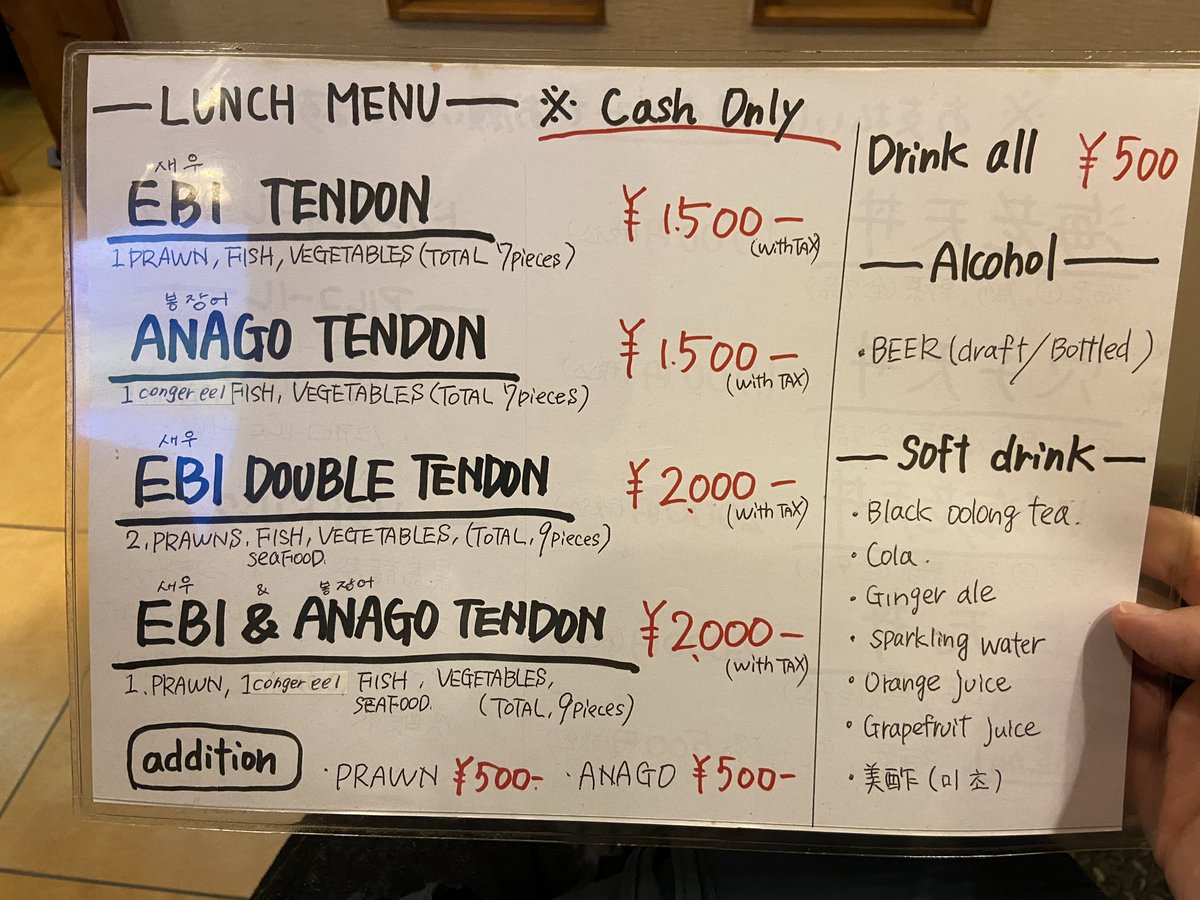 —LUNCH MENU— ※ Cash Only
새우
EBI TENDON ¥1.500—
(with TAX)
1 PRAWN, FISH, VEGETABLES (TOTAL 7pieces)
봉장어
ANAGO TENDON ¥1.500—
(with TAX)
1 conger eel FISH, VEGETABLES (TOTAL 7pieces)
새우
EBI DOUBLE TENDON ¥2.000—
(with TAX)
2. PRAWNS. FISH, VEGETABLES, (TOTAL, 9pieces)
SEAFOOD.
새우 & 봉장어
EBI & ANAGO TENDON ¥2.000—
(with TAX)
1. PRAWN, 1 conger eel FISH, VEGETABLES,
SEAFOOD. (TOTAL, 9pieces)
addition ・PRAWN ¥500- ・ANAGO ¥500-
Drink all ¥500
—Alcohol—
・BEER (draft/Bottled)
—Soft drink—
・Black oolong tea.
・Cola.
・Ginger ale
・Sparkling water
・Orange juice
・Grapefruit juice
・美酢 (미초)